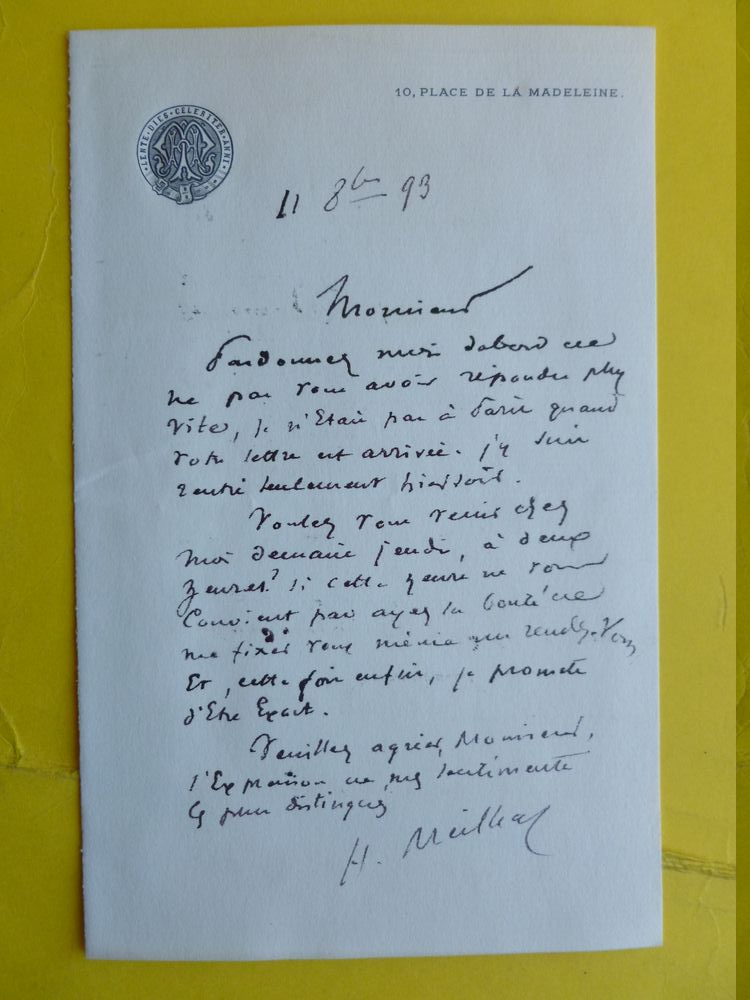 10, PLACE DE LA MADELEINE.
LENTE·DIES·CELERITER·ANNI
11 8bre 93
Monsieur
Pardonnez moi d'abord de
ne pas vous avoir répondu plus
vite, je n'Etais pas à Paris quand
votre lettre est arrivée. j'y suis
rentré seulement hier soir.
Voulez vous venir chez
moi demain jeudi, à deux
heures? si cette heure ne vous
Convient pas ayez la bonté de
me fixer vous même un rendez-vous
Et, cette fois enfin, je promets
d'Etre Exact.
Veuillez agréer, Monsieur,
l'Expression de mes sentiments
les plus distingués
H. Meilhac